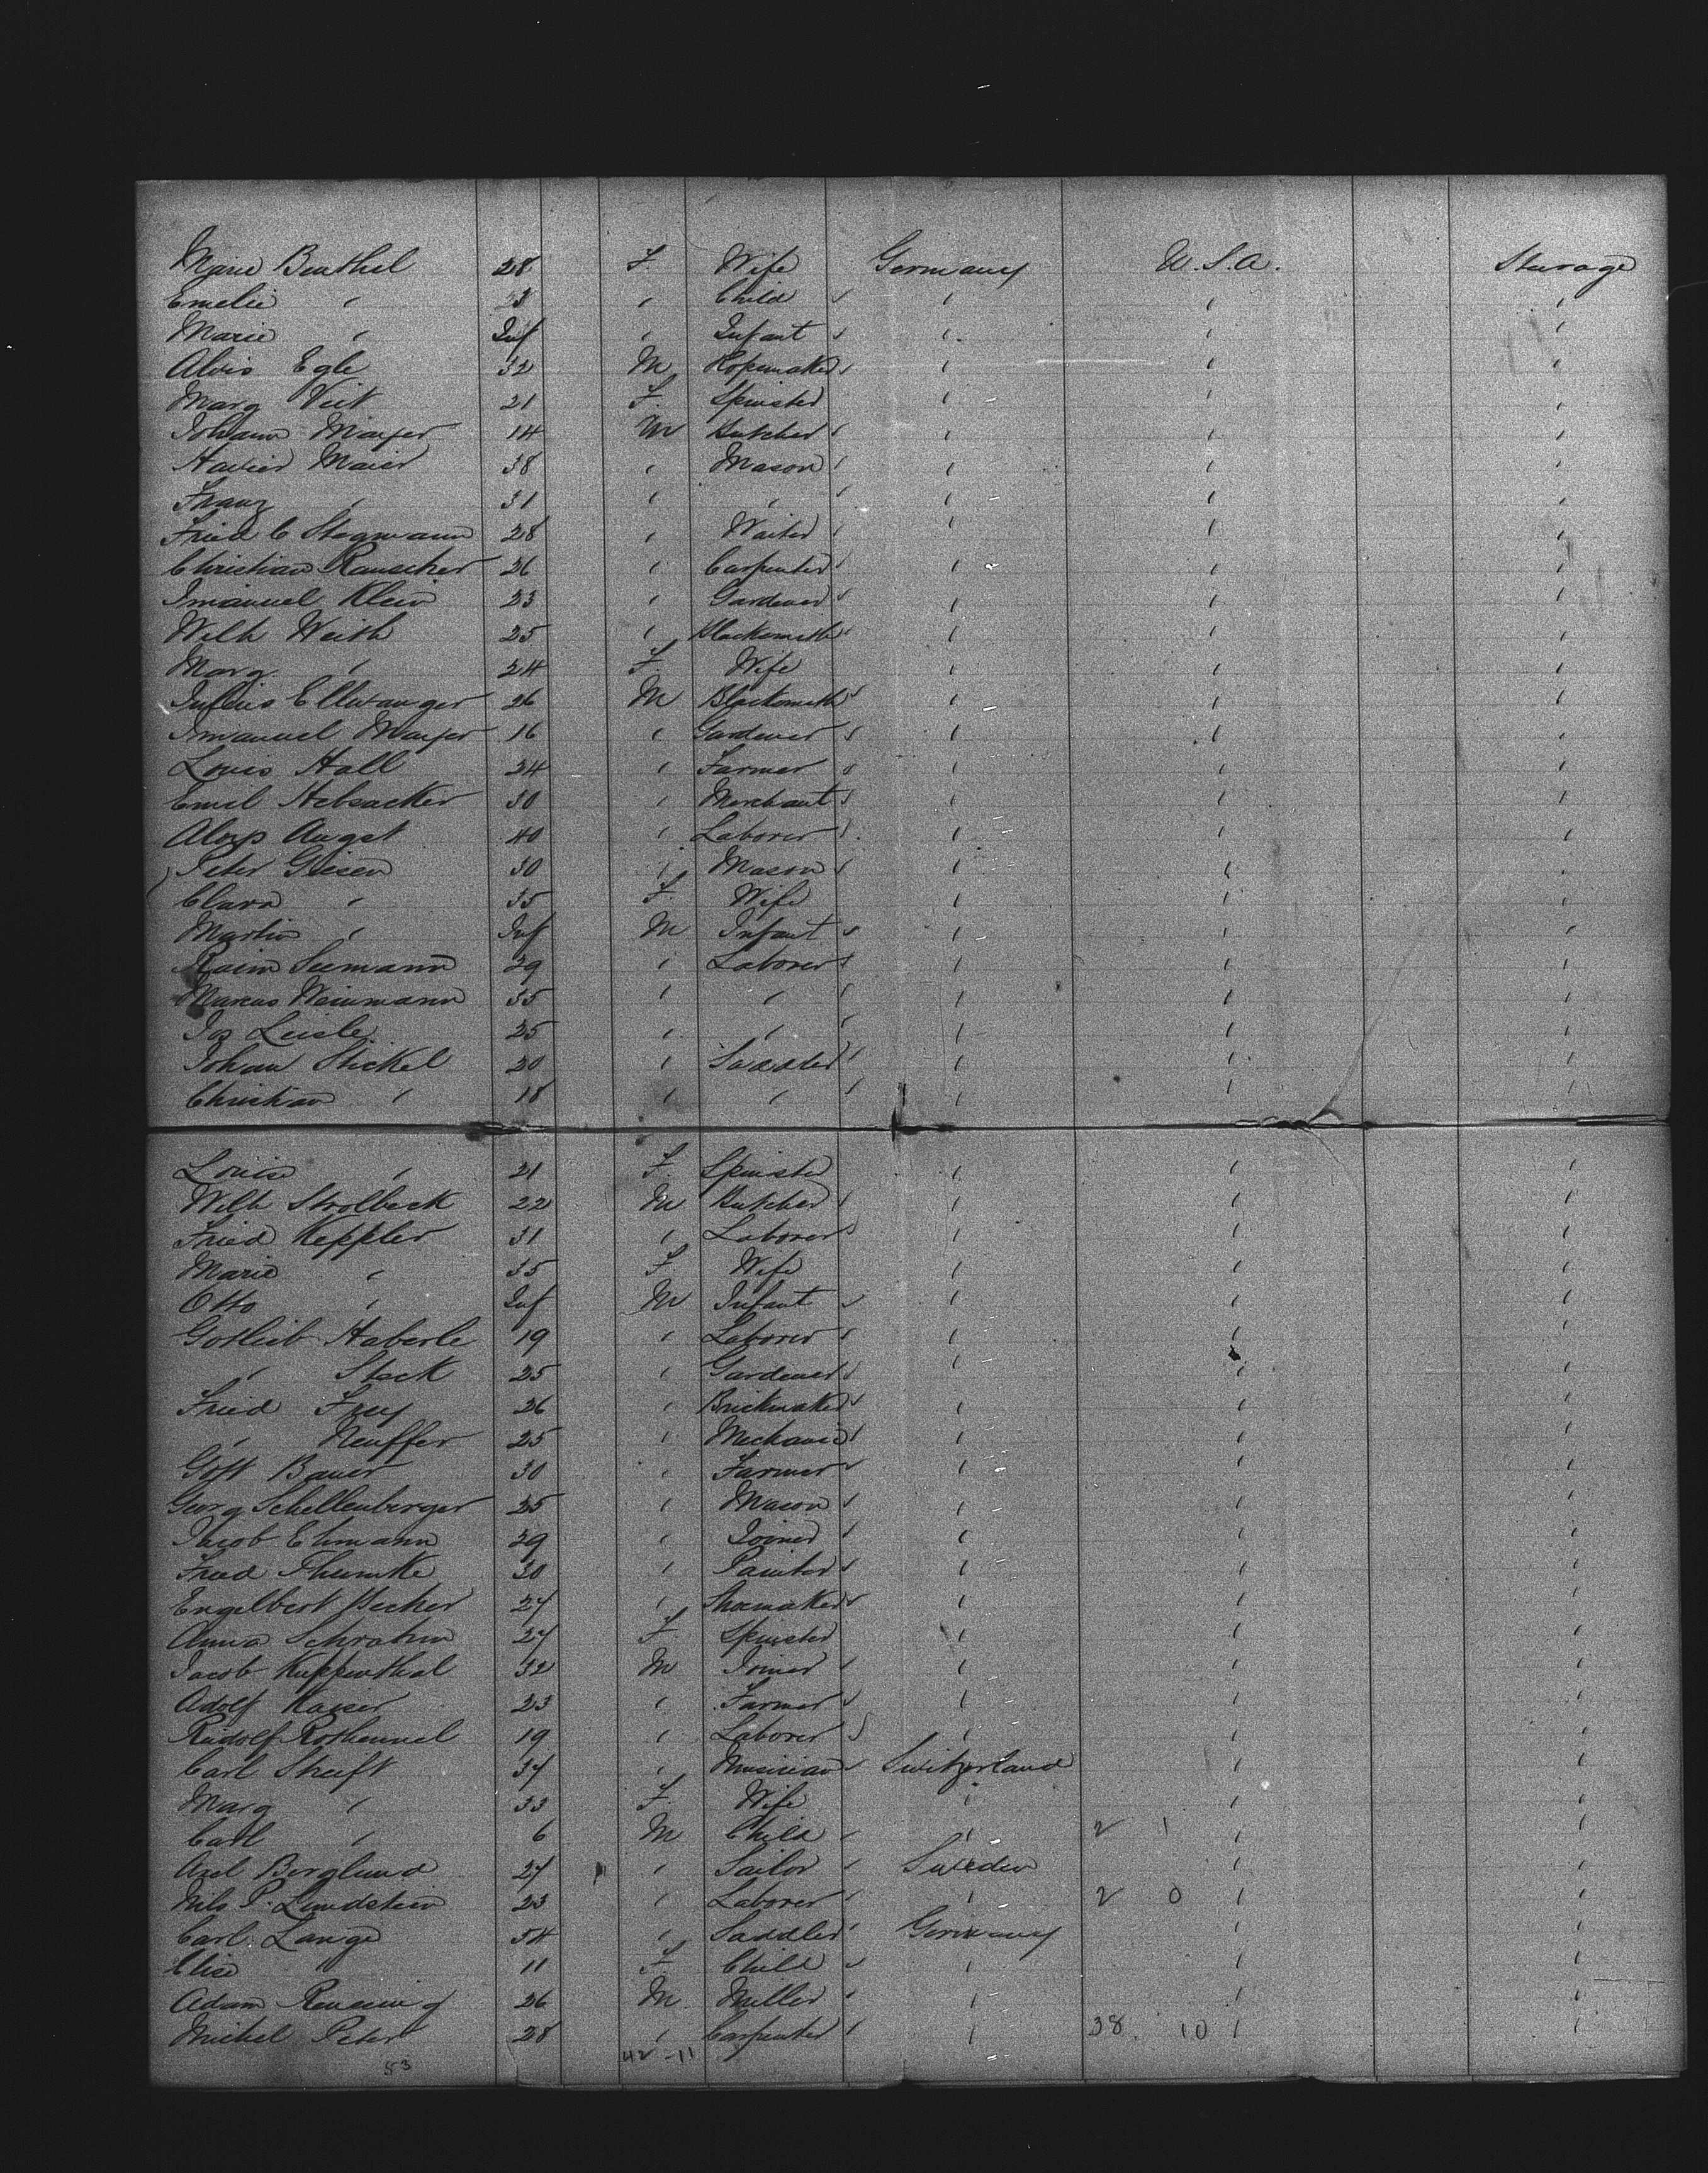 Marie Beuthel 28 F. Wife Germany U.S.A. Sterage
Emelie " 23 " Child " " "
Marie " Inf " Infant " " "
Alois Egle 32 M Ropemaker " " "
Marg Veit 21 F. Spinster " " "
Johann Mayer 14 M Butcher " " "
Xavier Maier 38 " Mason " " "
Franz " 31 " " " " "
Fried C Stegmann 28 " Waiter " " "
Christian Rauscher 26 " Carpenter " " "
Imanuel Klein 23 " Gardener " " "
Wilh Weith 25 " Blacksmith " " "
Marg " 24 F. Wife " " "
Julius Ellwanger 26 M Blacksmith " " "
Imanuel Mayer 16 " Gardener " " "
Louis Hall 24 " Farmer " " "
Emil Hebsacker 30 " Merchant " " "
Aloys Angst 40 " Laborer " " "
Peter Giesen 30 " Mason " " "
Clara " 35 F. Wife " " "
Martin " Inf M Infant " " "
Seemann 29 " Laborer " " "
Marcus Weinmann 35 " " " " "
Jos Leisle 25 " " " " "
Johan Stickel 20 " Saddler " " "
Christian " 18 " " " " "
Louise " 21 F. Spinster " " "
Wilh Strolbeck 22 M Butcher " " "
Fried Keppler 31 " Laborer " " "
Marie " 35 F Wife " " "
Otto " Inf M Infant " " "
Gotlieb Haberle 19 " Laborer " " "
" Steck 25 " Gardener " " "
Fried Frey 26 " Brickmaker " " "
" Neuffer 25 " Mechanic " " "
Gott Bauer 30 " Farmer " " "
Georg Schellenberger 25 " Mason " " "
Jacob Ehmann 29 " Joiner " " "
Fried Thumke 30 " Painter " " "
Engelbert Hecker 27 " Shoemaker " " "
Anna 27 F. Spinster " " "
Jacob Kuppenthal 32 M Joiner " " "
Adolf Kaiser 23 " Farmer " " "
Rudolf Rothermel 19 " Laborer " " "
Carl Streift 37 " Musician Switzerland " "
Marg " 33 F. Wife " " "
Carl " 6 M Child " 2 1 " "
Axel Berglund 27 " Sailor Sweden " "
Nils P. Lundstein 23 " Laborer " 2 0 " "
Carl Lange 54 " Saddler Germany " "
Elise " 11 F Child " " "
Adam 26 M. Miller " " "
Michel Peter 28 " Carpenter " 38. 10 " "
53 42-11